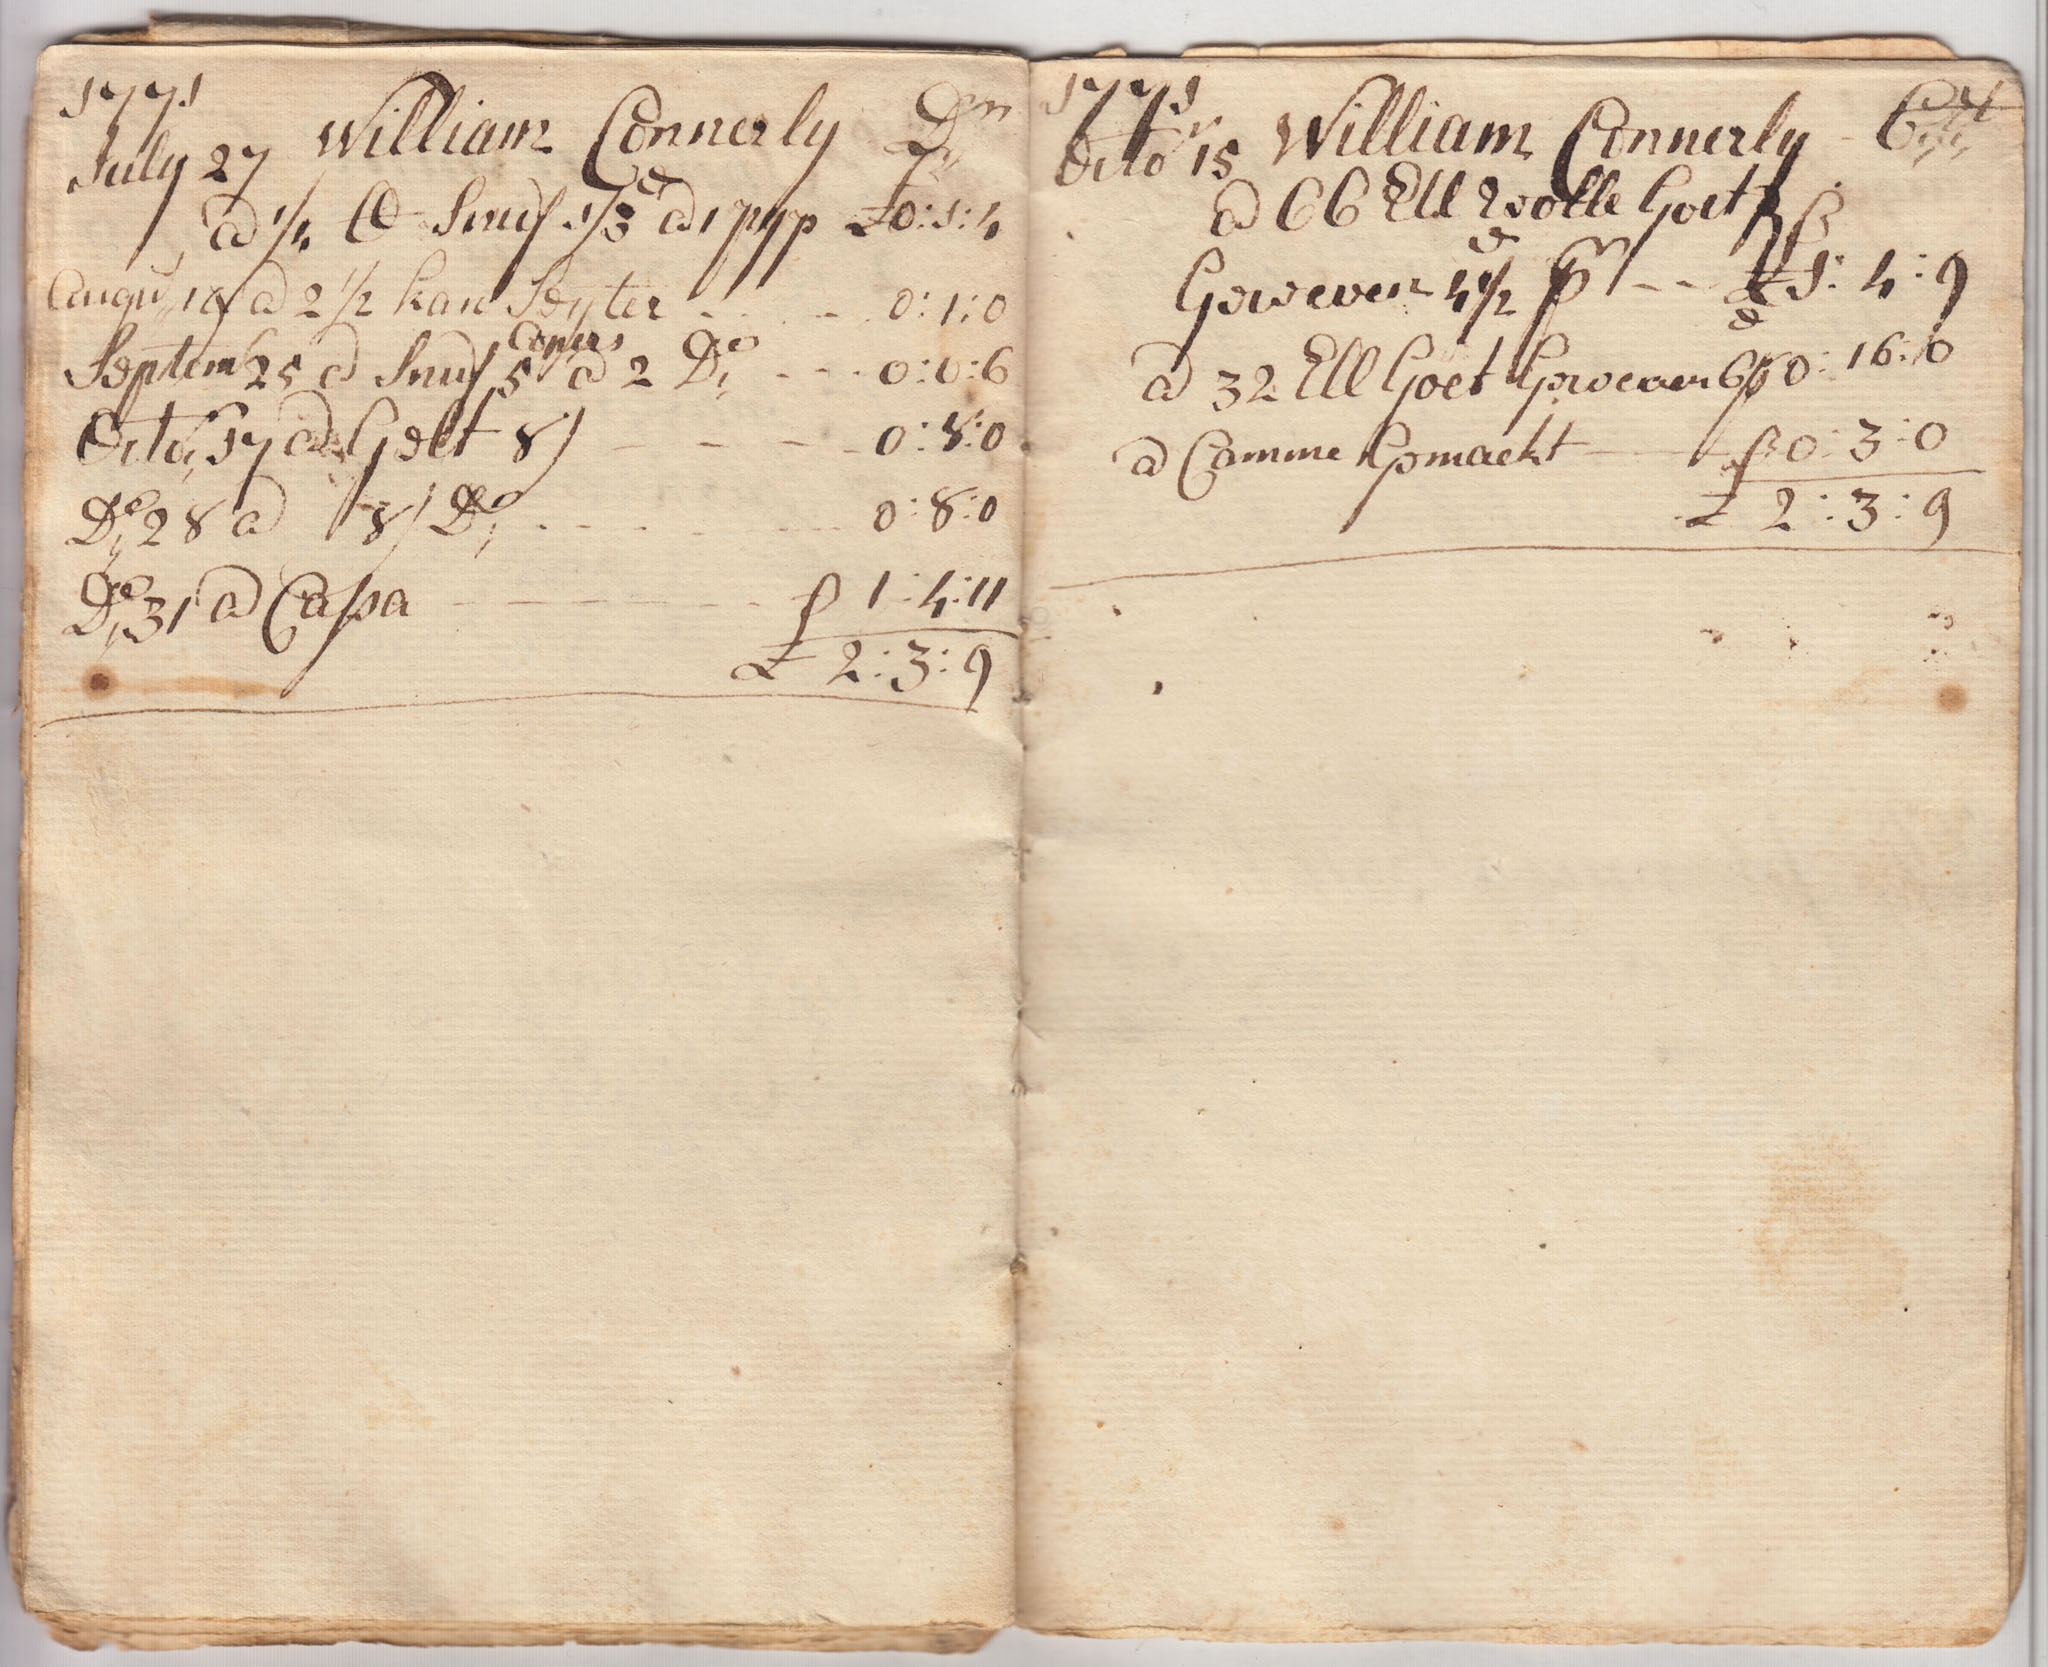 1771
July 27 William Connerly Dr
a 1/4 ℔ Snuf 1/3d a 1 pyp £0:1:4
Augus 19 a 2 1/2 kan Seyter 0:1:0
Septem 25 a Snuf 5 Copers a 2 Do 0:0:6
Octo 17 a Gelt 8/ 0:8:0
Do 28 a 8/ Do 0:8:0
Do 31 a Cassa 1:4:11
£ 2:3:9
1771
Octobr 15 William Connerly Cr
a 66 Ell Wolle Goet
Geweven 4 1/2d pr £1:4:9
a 32 Ell Goet Geweven 6d pr 0:16:0
a Camme Gemackt 0:3:0
£ 2:3:9